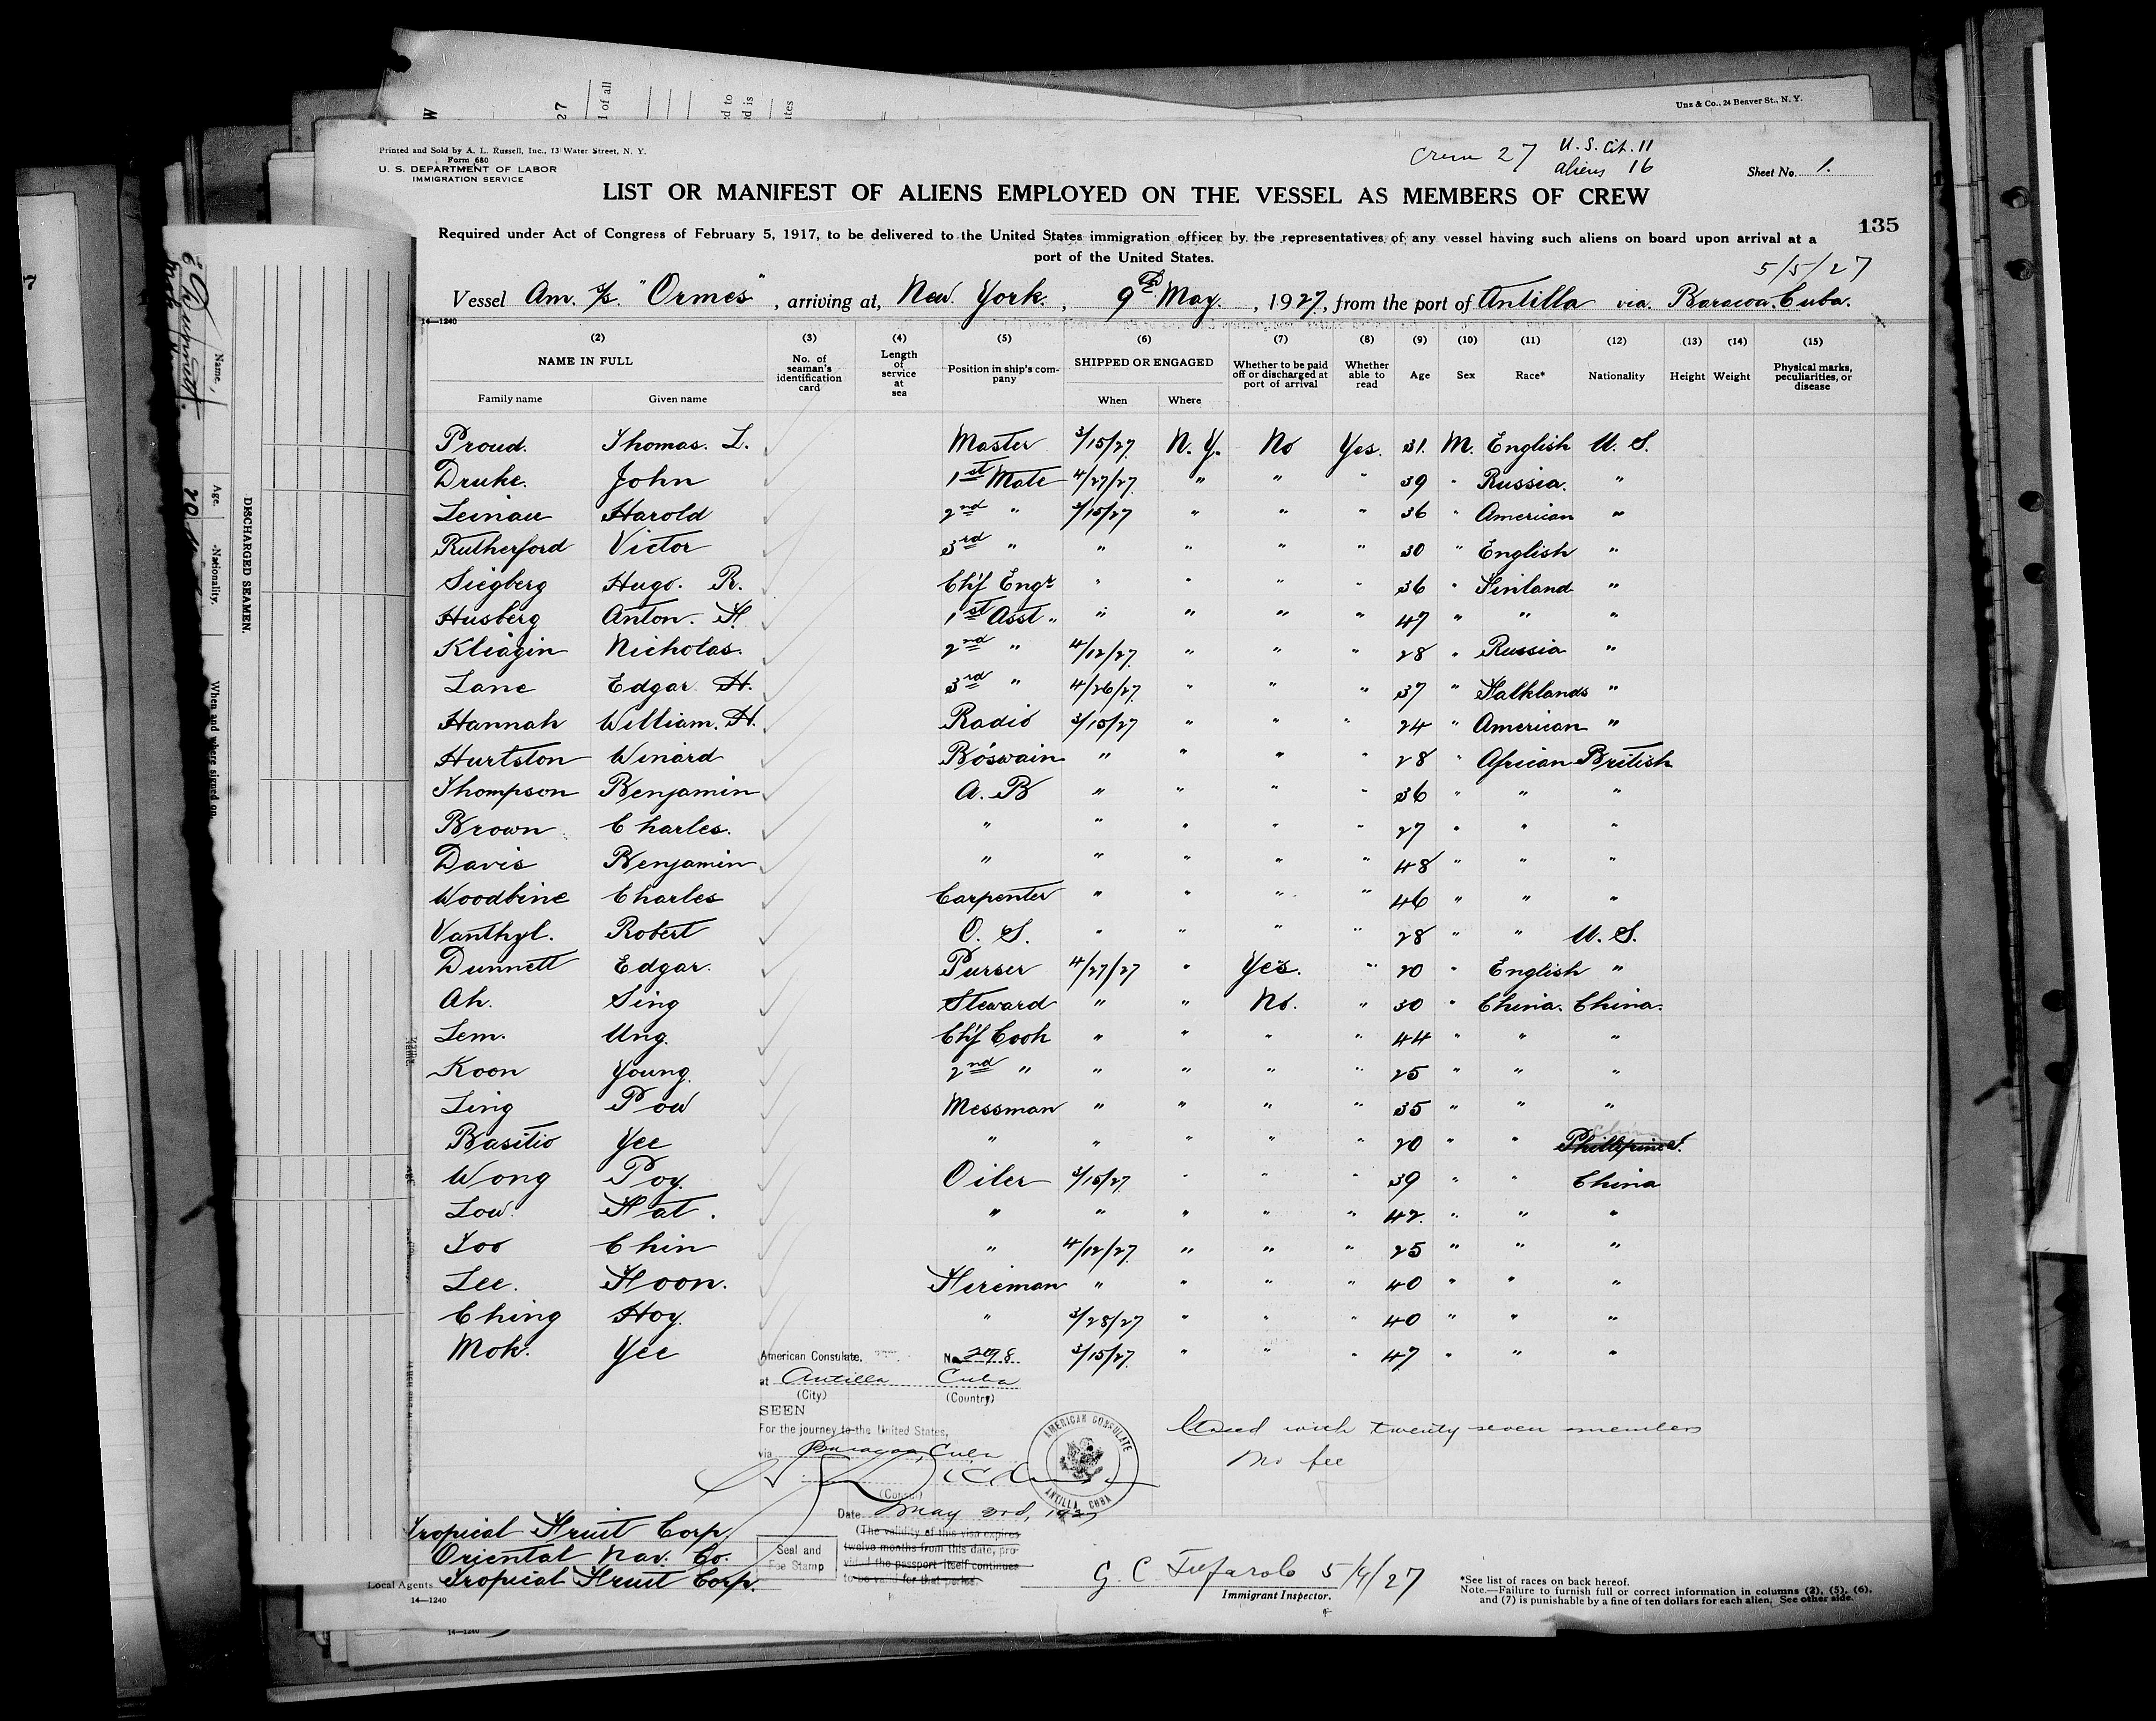 Unz & Co., 24 Beaver St., N. Y.
Printed and Sold by A. L. Russell, Inc., 13 Water Street, N. Y.
Form 680
U. S. DEPARTMENT OF LABOR
IMMIGRATION SERVICE
Crew 27 U. S. Cit. 11
aliens 16
Sheet No. 1.
LIST OR MANIFEST OF ALIENS EMPLOYED ON THE VESSEL AS MEMBERS OF CREW
135
Required under Act of Congress of February 5, 1917, to be delivered to the United States immigration officer by the representatives of any vessel having such aliens on board upon arrival at a
port of the United States.
5/5/27
Vessel Am. S/S. "Ormes", arriving at, New York., 9th May., 1927, from the port of Antilla via. Baracoa. Cuba.
14—1240
(2) (3) (4) (5) (6) (7) (8) (9) (10) (11) (12) (13) (14) (15)
NAME IN FULL No. of seaman's identification card Length of service at sea Position in ship's company SHIPPED OR ENGAGED Whether to be paid off or discharged at port of arrival Whether able to read Age Sex Race* Nationality Height Weight Physical marks, peculiarities, or disease
Family name Given name When Where
Proud. Thomas. L. Master 3/15/27 N. Y. No Yes. 31. M. English U. S.
Druke. John 1st Mate 4/27/27 " " " 39 " Russia. "
Leinau Harold 2nd " 3/15/27 " " " 36 " American "
Rutherford Victor 3rd " " " " " 30 " English "
Siegberg Hugo. R. Chf Engr " " " " 36 " Finland "
Husberg Anton. F. 1st Asst " " " " " 47 " " "
Kliagin Nicholas. 2nd " 4/12/27 " " " 28 " Russia "
Lane Edgar H. 3rd " 4/26/27 " " " 37 " Falklands "
Hannah William. H. Radio 3/15/27 " " " 24 " American "
Hurtston Winard Bo'swain " " " " 28 " African British
Thompson Benjamin A. B " " " " 36 " " "
Brown Charles. " " " " " 27 " " "
Davis Benjamin " " " " " 48 " " "
Woodbine Charles Carpenter " " " " 46 " " "
Vanthyl. Robert O. S. " " " " 28 " " U. S.
Dunnett Edgar. Purser 4/27/27 " Yes. " 20 " English "
Ah. Sing Steward " " No. " 30 " China. China.
Lem. Ung. Chf Cook " " " " 44 " " "
Koon Young. 2nd " " " " " 25 " " "
Ling Pow Messman " " " " 35 " " "
Basilio Yee " " " " " 20 " " China Phillipines.
Wong Poy. Oiler 3/15/27 " " " 39 " " China
Low. Fat. " " " " " 42. " " "
Foo Chin " 4/12/27 " " " 25 " " "
Lee. Hoon. Fireman " " " " 40 " " "
Ching Hoy. " 3/28/27 " " " 40 " " "
Mok. Yee 3/15/27 " " " 47 " " "
American Consulate, No. 298
at Antilla Cuba
(City) (Country)
SEEN
For the journey to the United States,
via Baracoa, Cuba
(Consul)
AMERICAN CONSULATE
ANTILLA, CUBA
Closed with twenty seven members
No fee
Date May 3rd, 1927
(The validity of this visa expires
twelve months from this date, pro-
vided the passport itself continues
to be valid for that period.
Seal and
Fee Stamp
Tropical Fruit Corp
Oriental Nav. Co.
Local Agents Tropical Fruit Corp.
14—1240
5/9/27
Immigrant Inspector.
*See list of races on back hereof.
Note.—Failure to furnish full or correct information in columns (2), (5), (6),
and (7) is punishable by a fine of ten dollars for each alien. See other side.
14—1240
DISCHARGED SEAMEN.
Name.
Age.
Nationality.
When and where signed on.
E Dunnett.
20